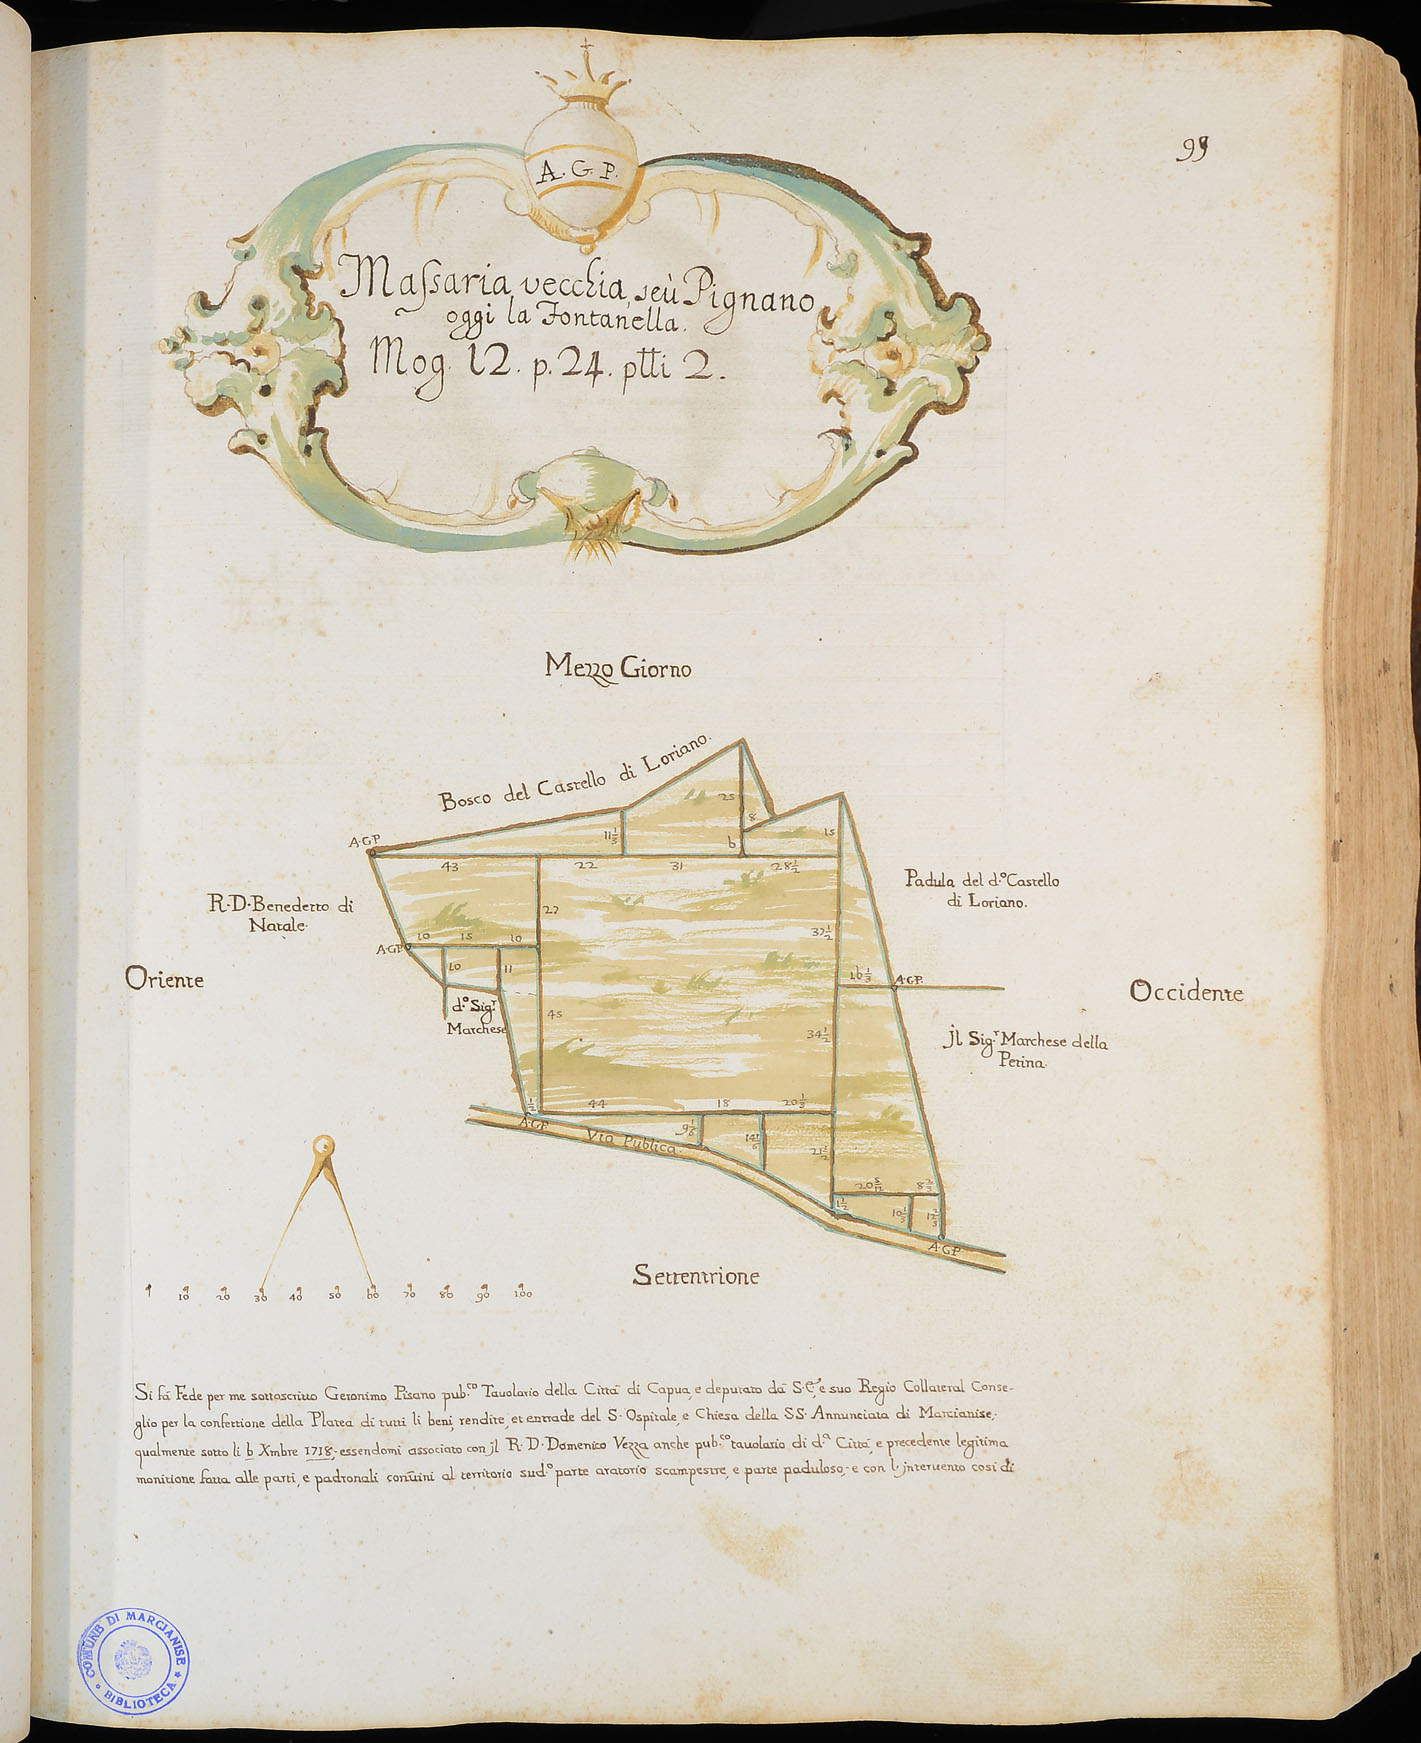 99
A. G. P.
Massaria vecchia, seù Pignano
oggi la Fontanella.
Mog. 12. p. 24. ptti 2.
Mezzo Giorno
Bosco del Castello di Loriano.
A.G.P
25
8
11 1/3
6
15
43
22
31
28 1/2
Padula del d.º Castello
di Loriano.
R. D. Benedetto di
Natale.
27
37 1/2
A.G.P
10
15
10
10
11
16 1/3
A.G.P.
Oriente
Occidente
d.º Sig.r
Marchese
45
34 1/2
jl Sig.r Marchese della
Petina.
1/2
44
18
20 1/3
A.G.P
Via Publica.
9 1/6
14 1/6
21 1/2
20 5/12
8 2/3
1 1/2
10 1/3
12 2/3
A.G.P
Settentrione
10 20 30 40 50 60 70 80 90 100
Si fà Fede per me sottoscritto Geronimo Pisano pub.co Tavolario della Città di Capua, e deputato dà S.E., e suo Regio Collateral Conse-
glio per la confettione della Platea di tutti li beni, rendite, et entrade del S. Ospitale, e Chiesa della SS. Annunciata di Marcianise,
qualmente sotto li 6 Xmbre 1718, essendomi associato con jl R. D. Domenico Vezza anche pub.co tavolario di d.a Città, e precedente legitima
monitione fatta alle parti, e padronali convicini al territorio sud.º parte aratorio scampestre, e parte paduloso, e con l'jntervento così di
COMUNE DI MARCIANISE
* BIBLIOTECA *